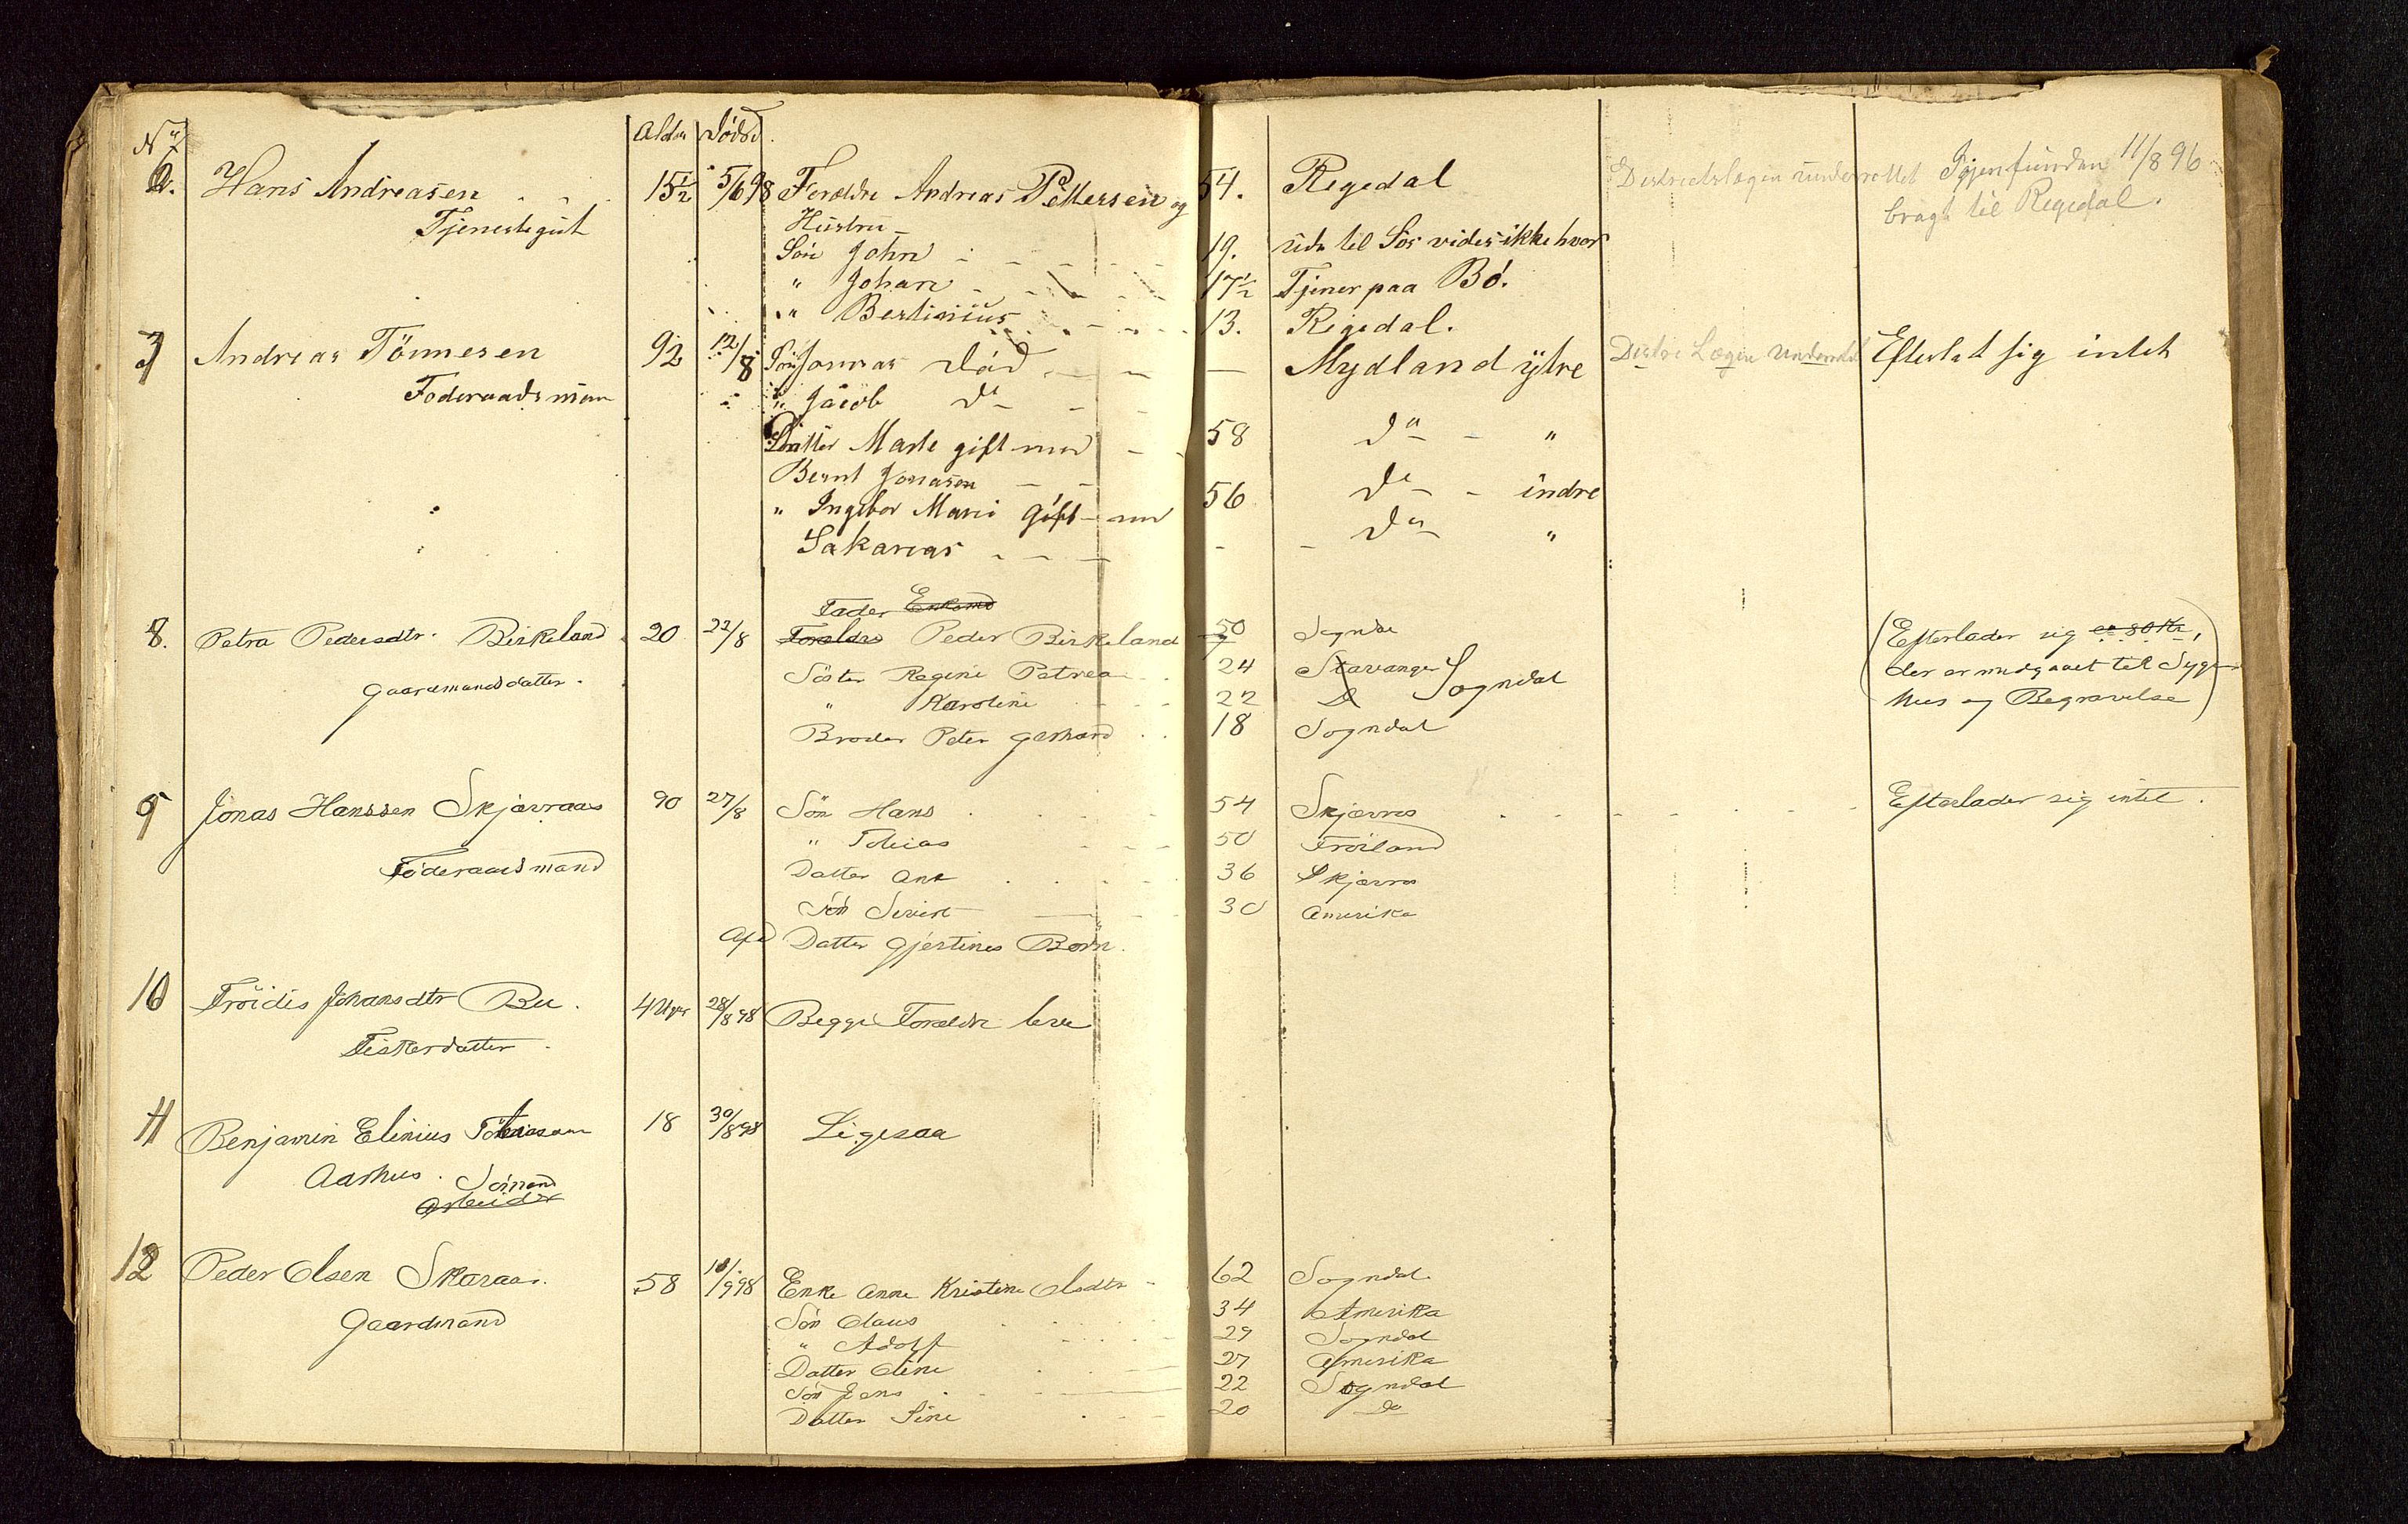 No Alder Dödsd.
6. Hans Andreasen 15½ 5/6 98 Foreldre Andreas Pettersen og 54. Regedal Districtslægen underrettet Igjenfunden 11/8 96
Tjenestegut Hustru bragt til Regedal.
Sön John 19. ude til Sös vides ikke hvor
" Johan 17½ Tjener paa Bö.
" Bertinius 13. Regedal.
7 Andreas Tönnesen 92 12/8 Sön Jonas Död — Mydland ytre Distr. Lægen underrettet Efterlat sig intet
Föderaadsman " Jacob Do
Datter Marte gift med 58 Do "
Bernt Jonasen
" Ingebor Marie gift med 56 Do indre
Sakarias - - Do "
Fader Enkemd
8. Petra Pedersdtr. Birkeland 20 22/8 Foreldre Peder Birkeland 50 Sogndal (Efterlader sig ca 80 Kr,
Gaardmandsdatter. Söster Regine Petrea 24 Stavanger Sogndal der er medgaaet til Syge-
" Karoline 22 Do hus og Begravelse)
Broder Peter Gerhard 18 Sogndal
9 Jonas Hanssen Skjævraas 90 27/8 Sön Hans 54 Skjævras Efterlader sig intet.
" Tobias 50 Fröiland
Föderaadsmand Datter Ane 36 Skjævras
Sön Sivert 30 Amerika
Afd Datter Gjertines Börn.
10 Fröidis Johansdtr Bu. 4 Uger 28/8 98 Begge Foreldre leve
Fiskerdatter
11 Benjamin Elinius Tobiassen 18 30/8 98 Ligesaa
Aarhus. Sömand
Arbeider
12 Peder Olsen Skaraas. 58 10/9 98 Enke Anne Kristine Olsdtr 62 Sogndal
Gaardmand Sön Claus 34 Amerika
" Adolf 29 Sogndal
Datter Oline 27 Amerika
Sön Jens 22 Sogndal
Datter Sine 20 Do